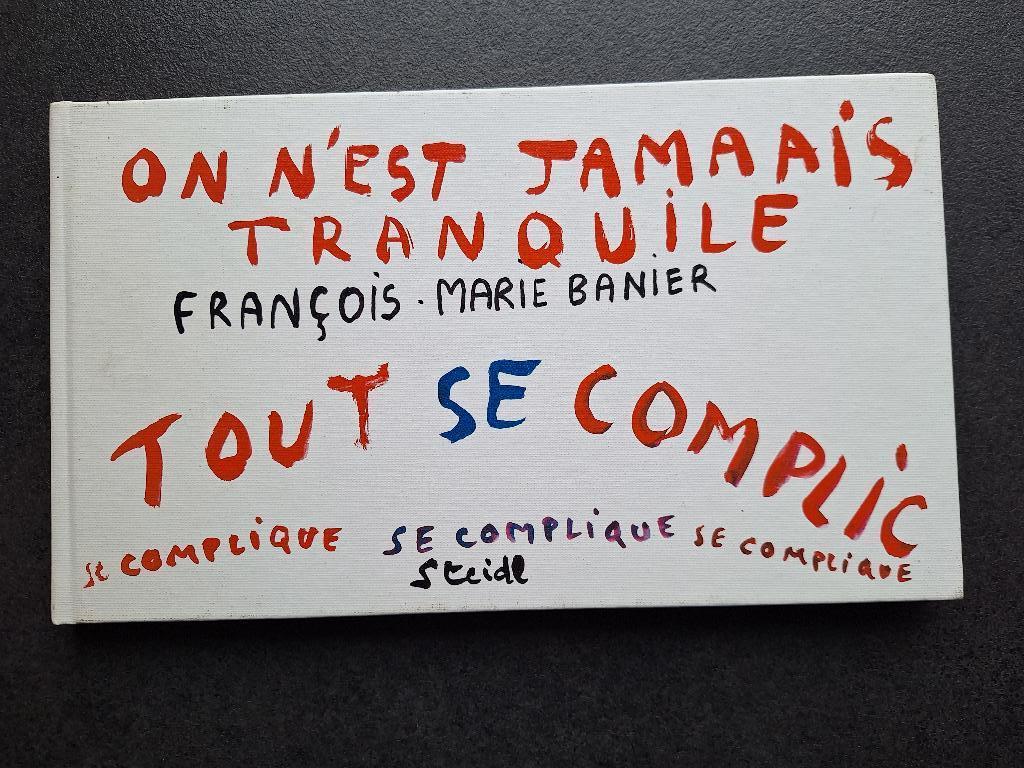 ON N'EST JAMAAIS
TRANQUILE
FRANÇOIS. MARIE BANIER
TOUT SE COMPLIC
SE COMPLIQUE SE COMPLIQUE SE COMPLIQUE
Steidl